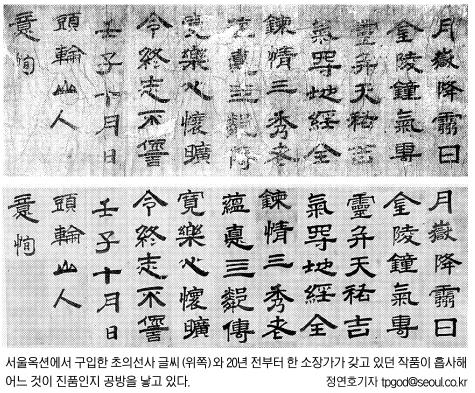 月嶽降霛曰
金陵鐘氣專
靈天祐吉
氣地經全
鍊情三秀老
真
寬樂心懷曠
令終志不
壬子十月日
頭輪山人
意恂
月嶽降霛曰
金陵鐘氣專
靈天祐吉
氣地經全
鍊情三秀老
蘊真三傳
寬樂心懷曠
令終志不
壬子十月日
頭輪山人
意恂
서울옥션에서 구입한 초의선사 글씨(위쪽)와 20년 전부터 한 소장가가 갖고 있던 작품이 흡사해
어느 것이 진품인지 공방을 낳고 있다. 정연호기자 tpgod@seoul.co.kr